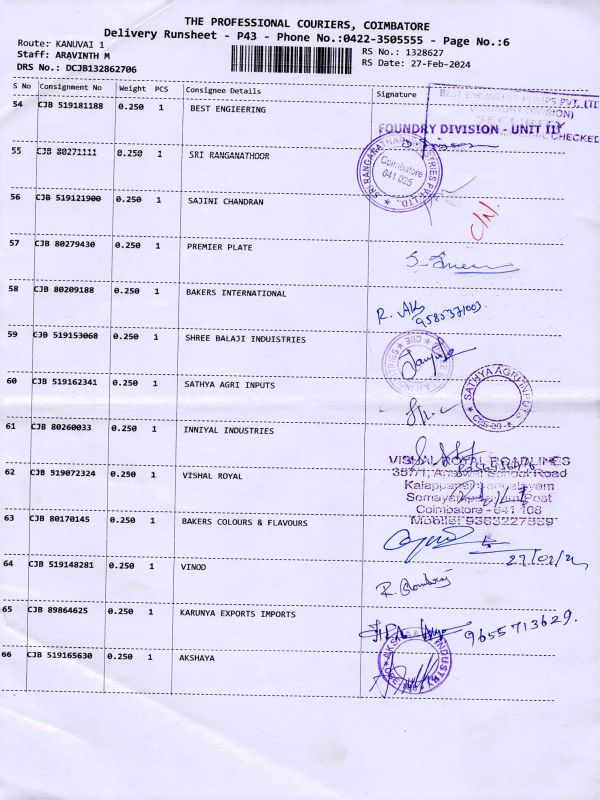 THE PROFESSIONAL COURIERS, COIMBATORE
Delivery Runsheet - P43 - Phone No.:0422-3505555 - Page No.:6
Route: KANUVAI 1
Staff: ARAVINTH M
DRS No.: DCJB132862706
RS No.: 1328627
RS Date: 27-Feb-2024
S No Consignment No Weight PCS Consignee Details Signature
54 CJB 519181188 0.250 1 BEST ENGIEERING
FOUNDRY DIVISION - UNIT III
CHECKED
55 CJB 80271111 0.250 1 SRI RANGANATHOOR
SRI RANGANATHAR INDUSTRIES PVT.LTD.
Coimbatore
641 025
56 CJB 519121900 0.250 1 SAJINI CHANDRAN
57 CJB 80279430 0.250 1 PREMIER PLATE
58 CJB 80209188 0.250 1 BAKERS INTERNATIONAL
59 CJB 519153068 0.250 1 SHREE BALAJI INDUISTRIES
60 CJB 519162341 0.250 1 SATHYA AGRI INPUTS
SATHYA AGRI INPUTS
61 CJB 80260033 0.250 1 INNIYAL INDUSTRIES
62 CJB 519072324 0.250 1 VISHAL ROYAL
VISHAL ROYAL ROADLINES
Road
Post
Coimbatore - 641 108
Mobile: 9363227559
63 CJB 80170145 0.250 1 BAKERS COLOURS & FLAVOURS
64 CJB 519148281 0.250 1 VINOD
65 CJB 89864625 0.250 1 KARUNYA EXPORTS IMPORTS
9655713629.
66 CJB 519165630 0.250 1 AKSHAYA
AKSHAYA INDUSTRY